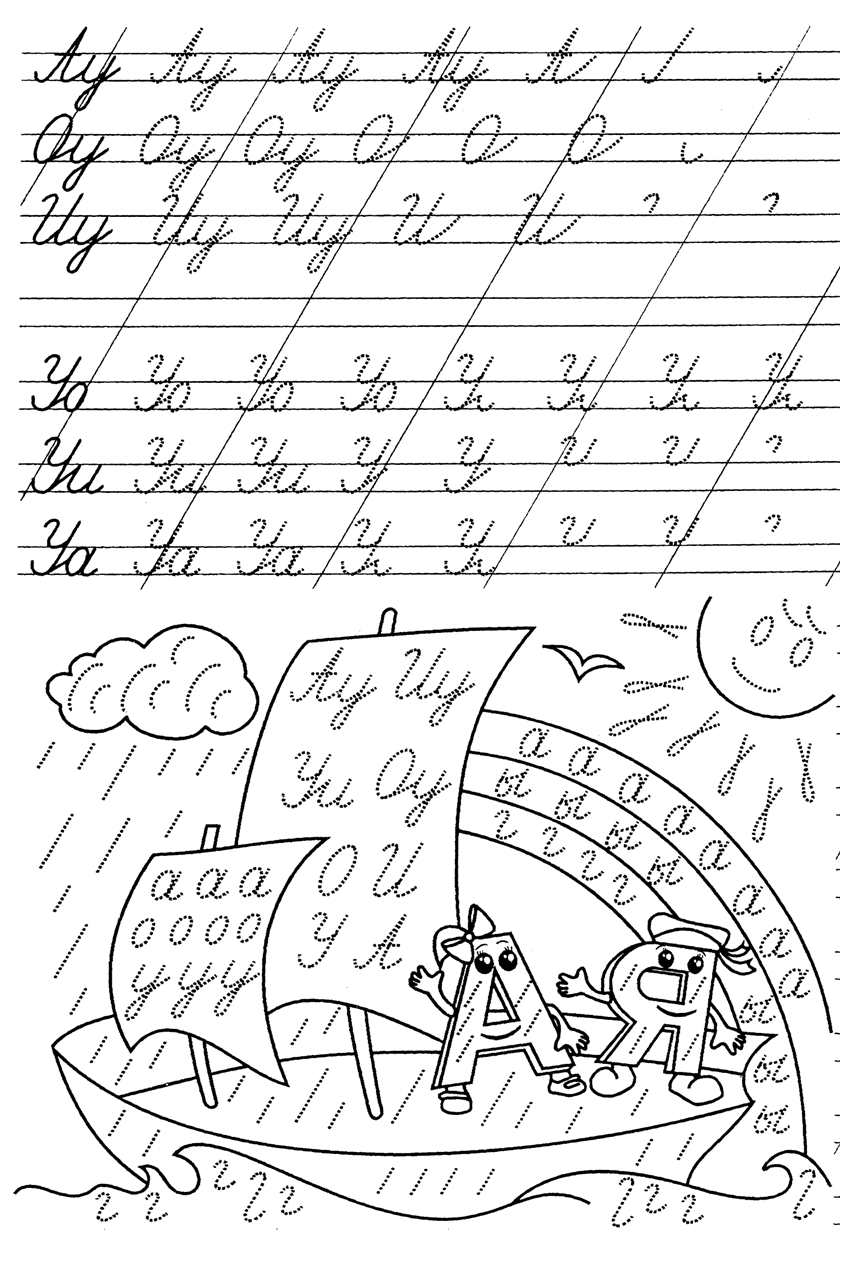 Ау Ау Ау Ау А
Оу Оу Оу О О О
Иу Иу Иу И И
Уо Уо Уо Уо У У У У
Уи Уи Уи У У
Уа Уа Уа У У
Ау Иу
Уи Оу
О И
У А
а а а
о о о о
у у у
а а а а а а а а
ы ы ы ы ы ы ы
г г г г г
А Я
г г г г г
г г г г